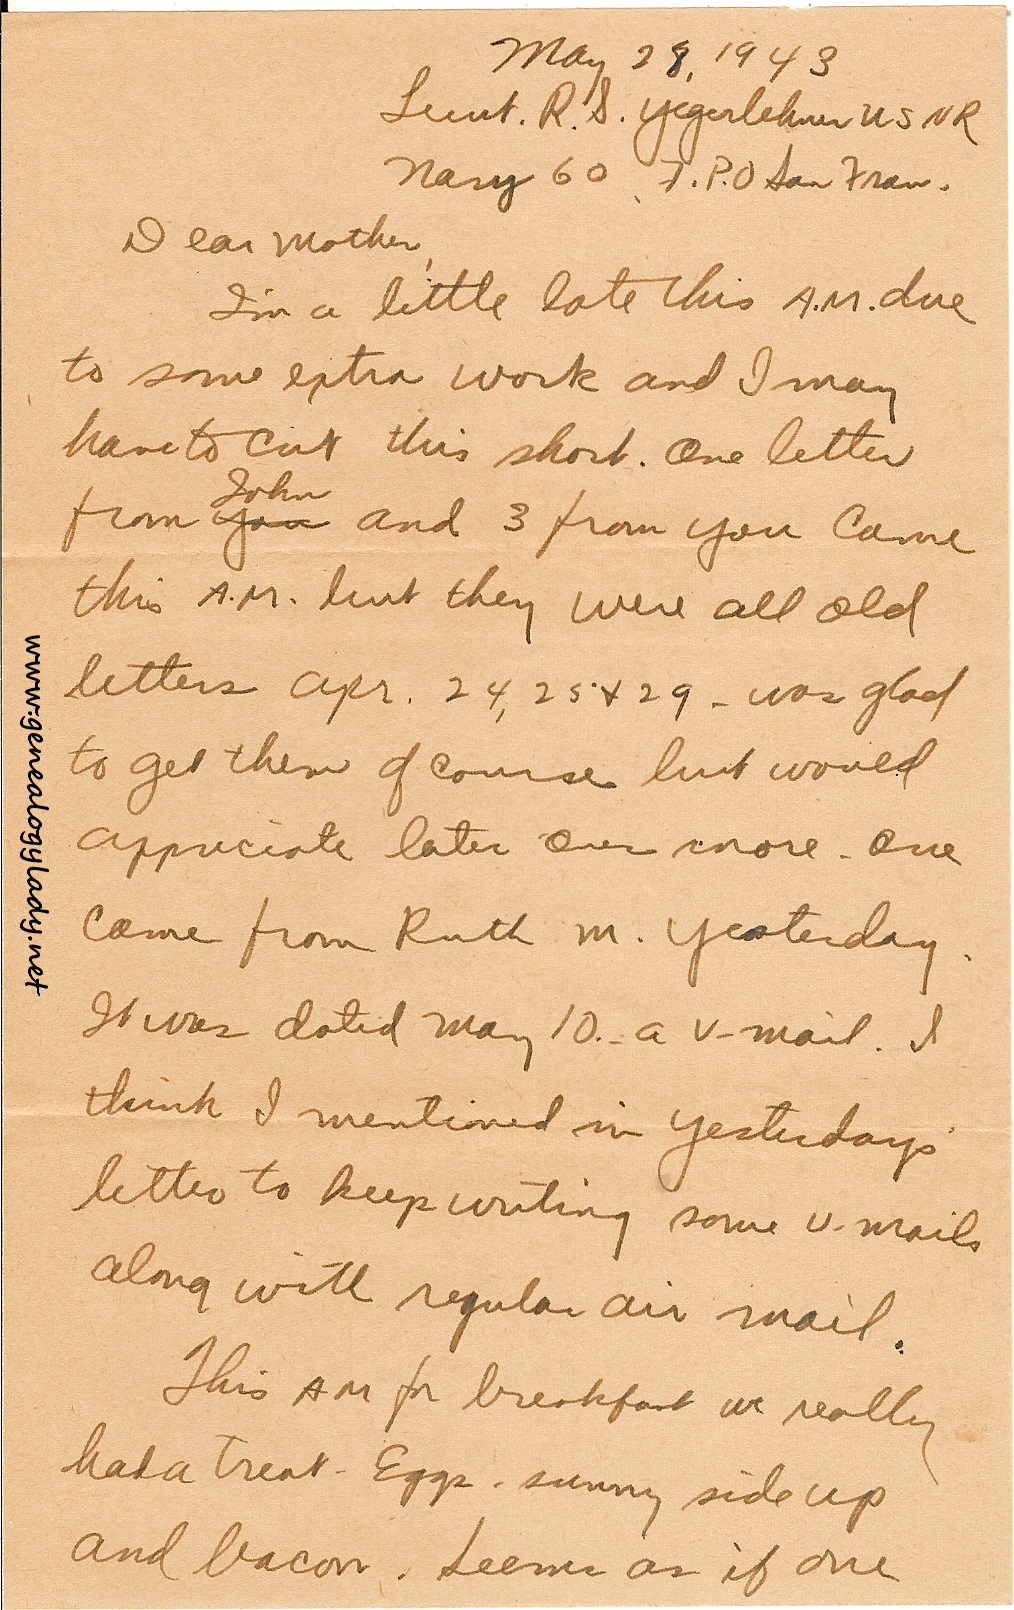 May 28, 1943
Lieut. R. S. Yegerlehner USNR
Navy 60 F.P.O San Fran.
Dear Mother,
I'm a little late this A.M. due
to some extra work and I may
have to cut this short. One letter
John
from you and 3 from you came
this A.M. but they were all old
letters Apr. 24, 25 + 29 - was glad
to get them of course but would
appreciate later ones more - One
came from Ruth M. Yesterday.
It was dated May 10. - a v-mail. I
think I mentioned in yesterdays
letter to keep writing some v-mails
along with regular air mail.
This AM for breakfast we really
had a treat - Eggs - sunny side up
and bacon. Seems as if one
www.genealogylady.net